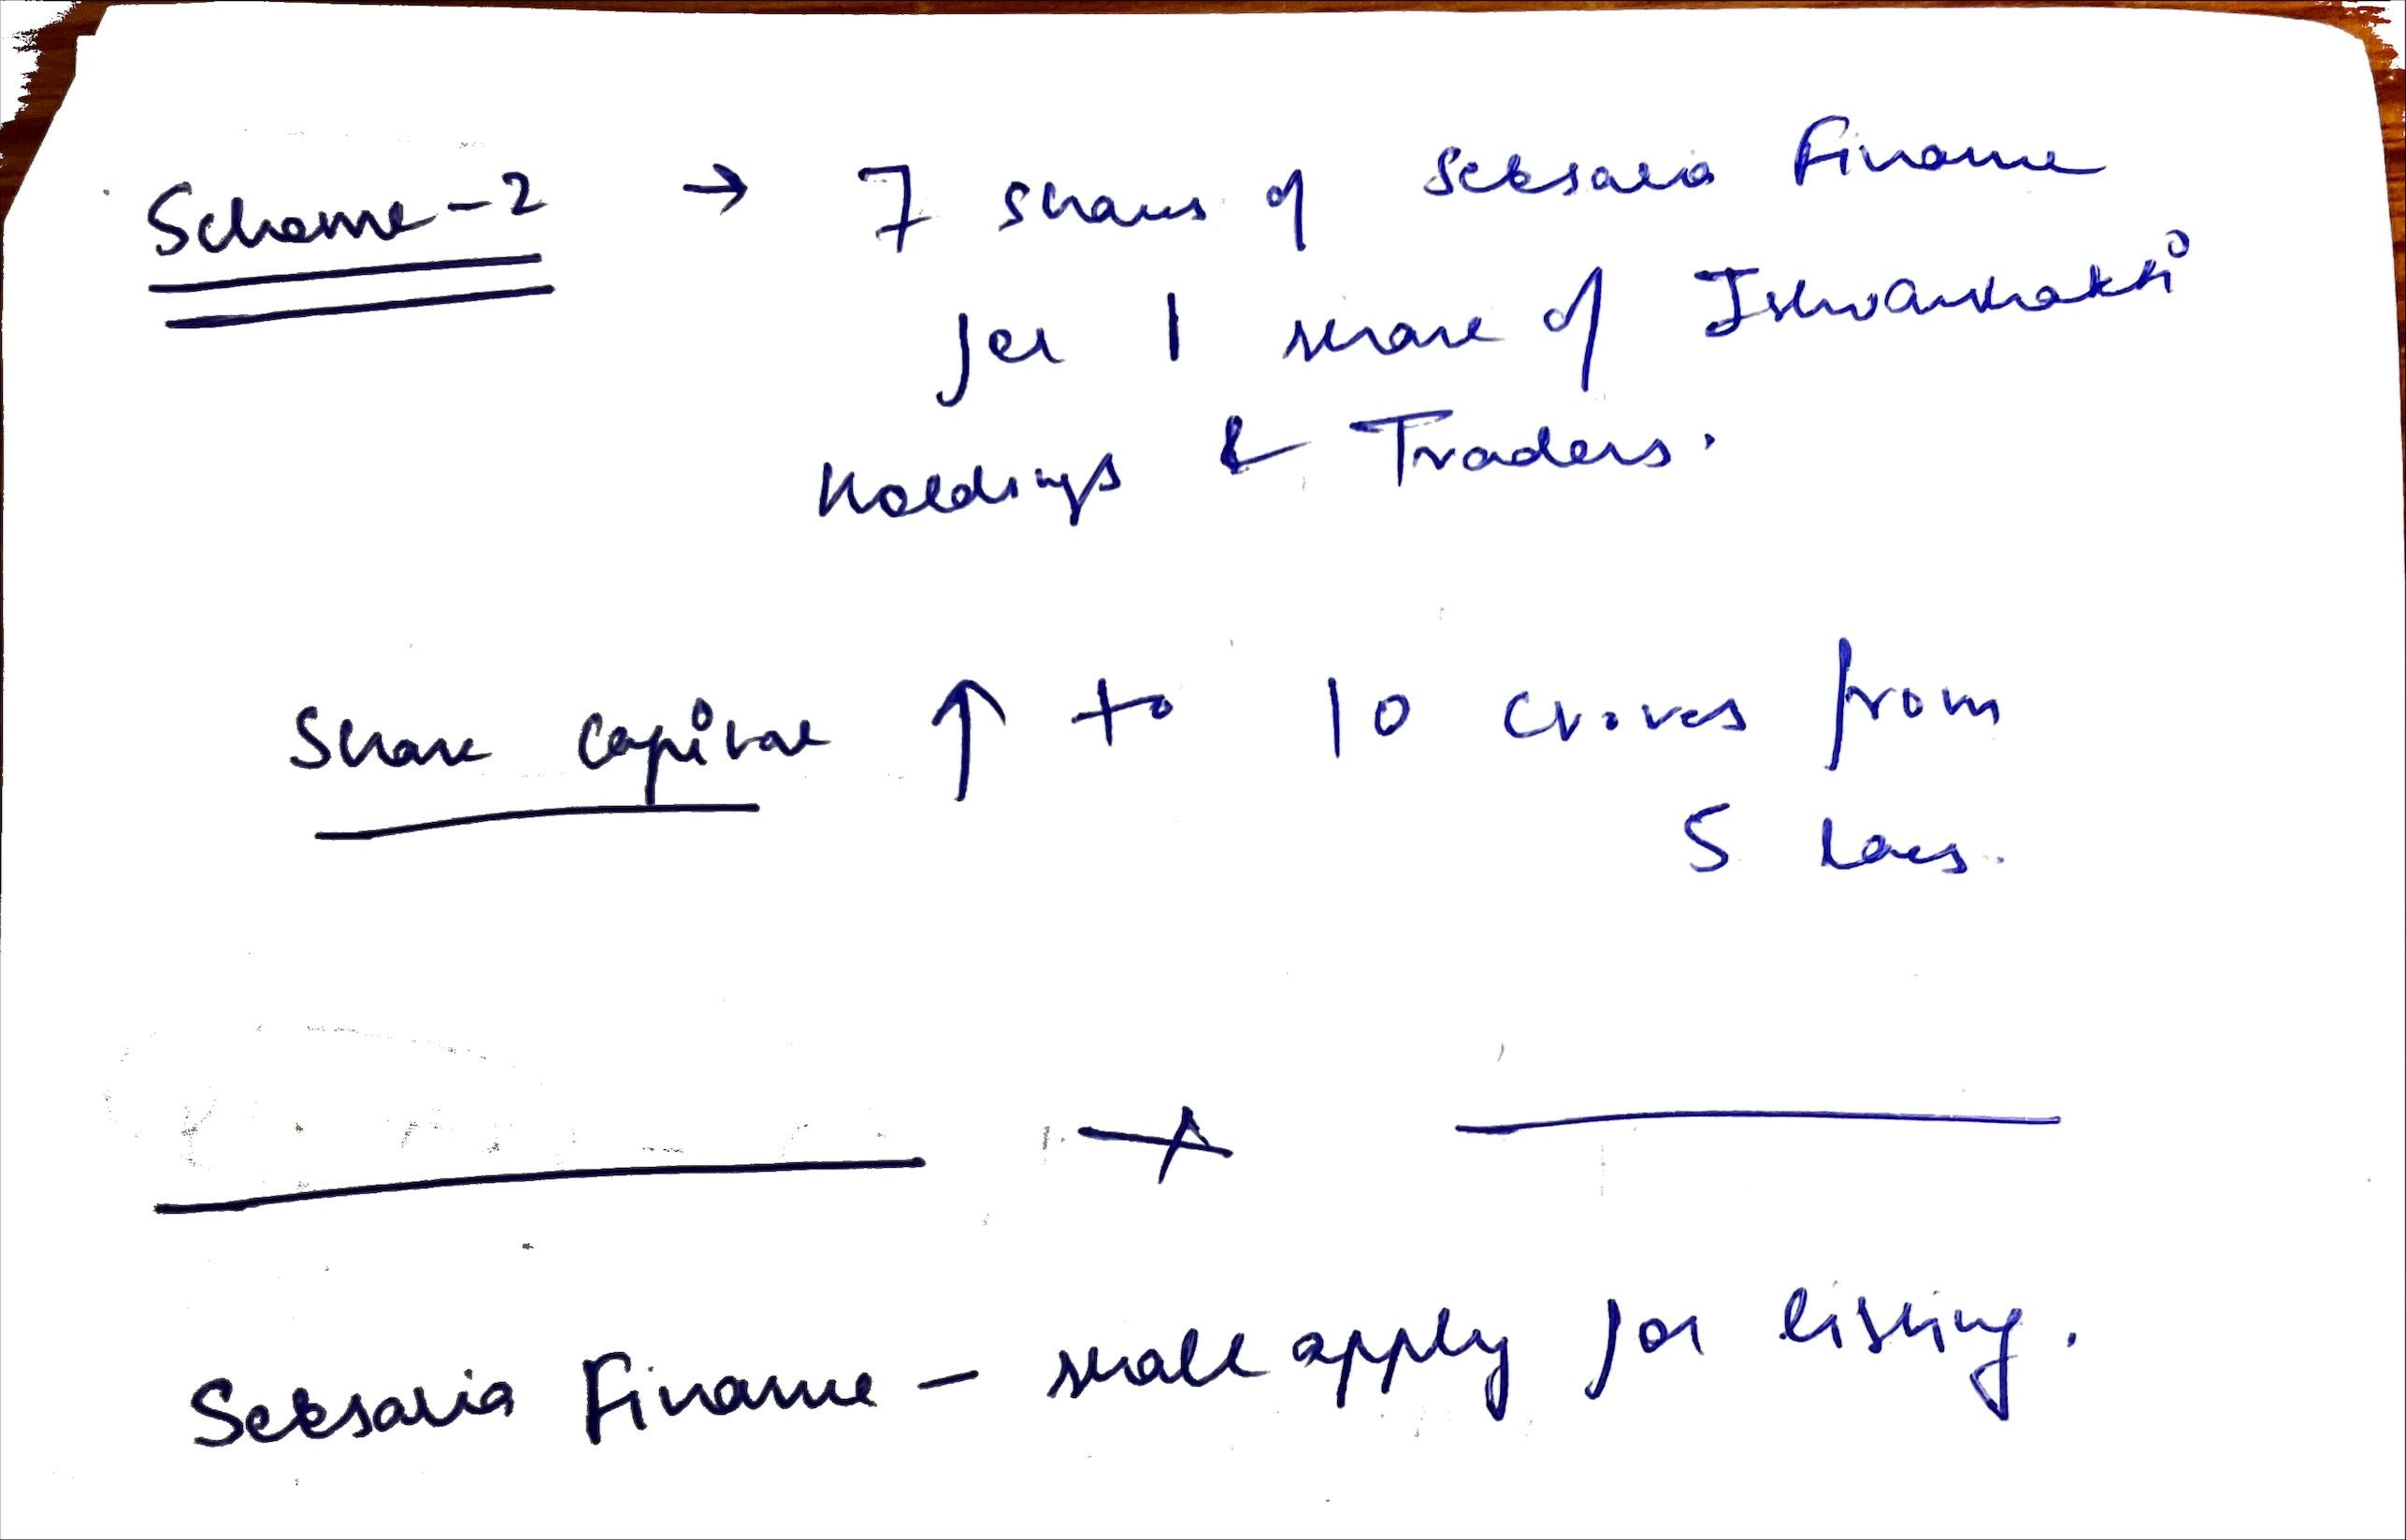 Scheme-2 → 7 shares of Seksaria Finance
for 1 share of Ishwarshakti
Holdings & Traders.
Share Capital ↑ to 10 crores from
5 lacs.
Seksaria Finance - shall apply for listing.